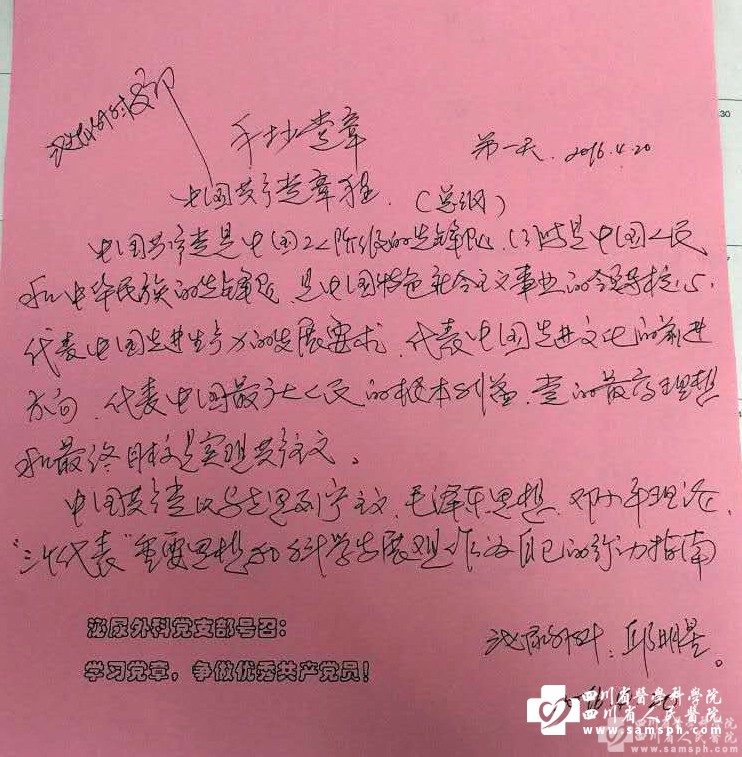 泌尿外科支部
手抄党章
第一天. 2016.4.20
中国共产党章程.（总纲）
中国共产党是中国工人阶级的先锋队,同时是中国人民
和中华民族的先锋队,是中国特色社会主义事业的领导核心,
代表中国先进生产力的发展要求,代表中国先进文化的前进
方向,代表中国最广大人民的根本利益,党的最高理想
和最终目标是实现共产主义。
中国共产党以马克思列宁主义,毛泽东思想,邓小平理论,
“三个代表”重要思想和科学发展观作为自己的行动指南
泌尿外科党支部号召：
学习党章，争做优秀共产党员！
泌尿外科：邱明星。
四川省醫學科學院
四川省人民醫院
www.samsph.com